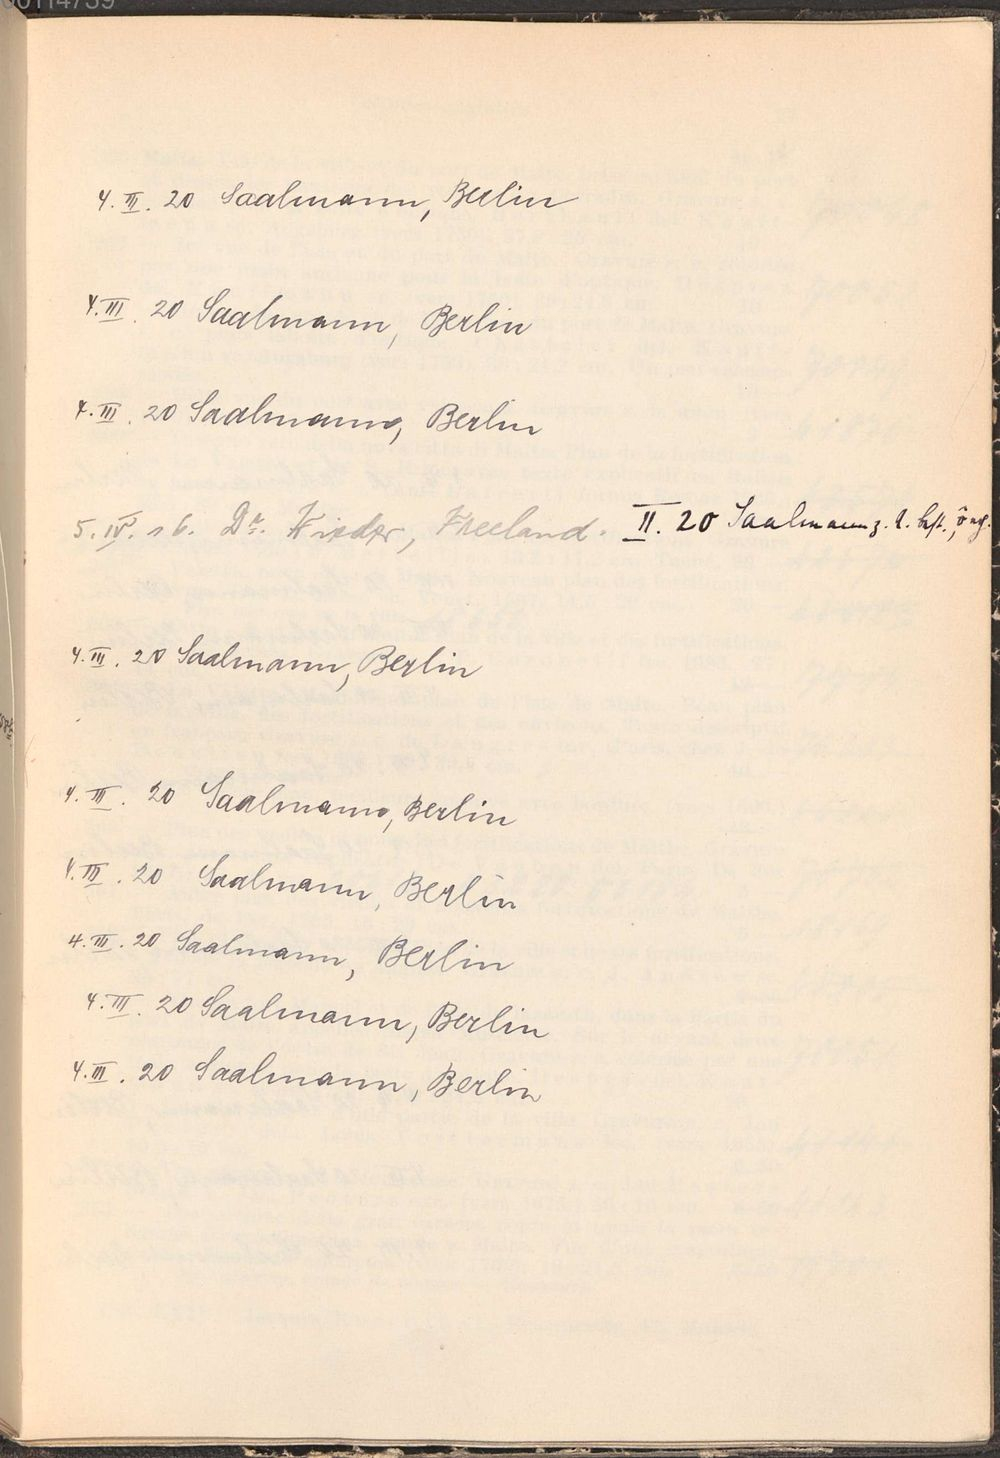 4. III. 20 Saalmann, Berlin
4. III. 20 Saalmann, Berlin
4. III. 20 Saalmann, Berlin
5. IV. 16. Dr. Wieder, Freeland. II. 20 Saalmann z.
4. III. 20 Saalmann, Berlin
4. III. 20 Saalmann, Berlin
4. III. 20 Saalmann, Berlin
4. III. 20 Saalmann, Berlin
4. III. 20 Saalmann, Berlin
4. III. 20 Saalmann, Berlin